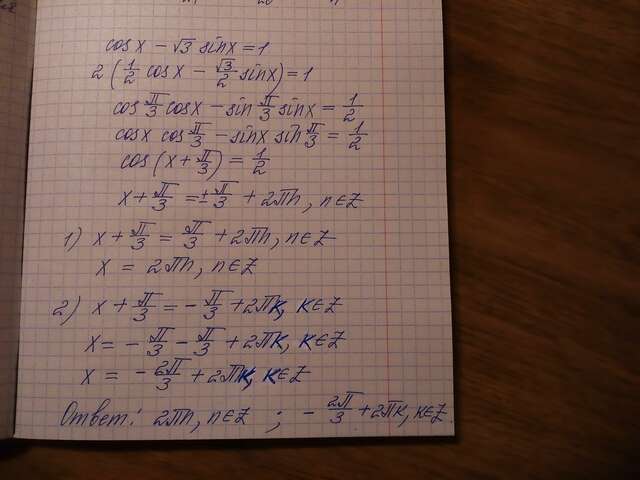 cos x − √3 sin x = 1
2 (1/2 cos x − √3/2 sin x) = 1
cos π/3 cos x − sin π/3 sin x = 1/2
cos x cos π/3 − sin x sin π/3 = 1/2
cos (x + π/3) = 1/2
x + π/3 = ± π/3 + 2πn, n ∈ Z
1) x + π/3 = π/3 + 2πn, n ∈ Z
x = 2πn, n ∈ Z
2) x + π/3 = − π/3 + 2πк, к ∈ Z
x = − π/3 − π/3 + 2πк, к ∈ Z
x = − 2π/3 + 2πк, к ∈ Z
Ответ: 2πn, n ∈ Z ; − 2π/3 + 2πк, к ∈ Z.